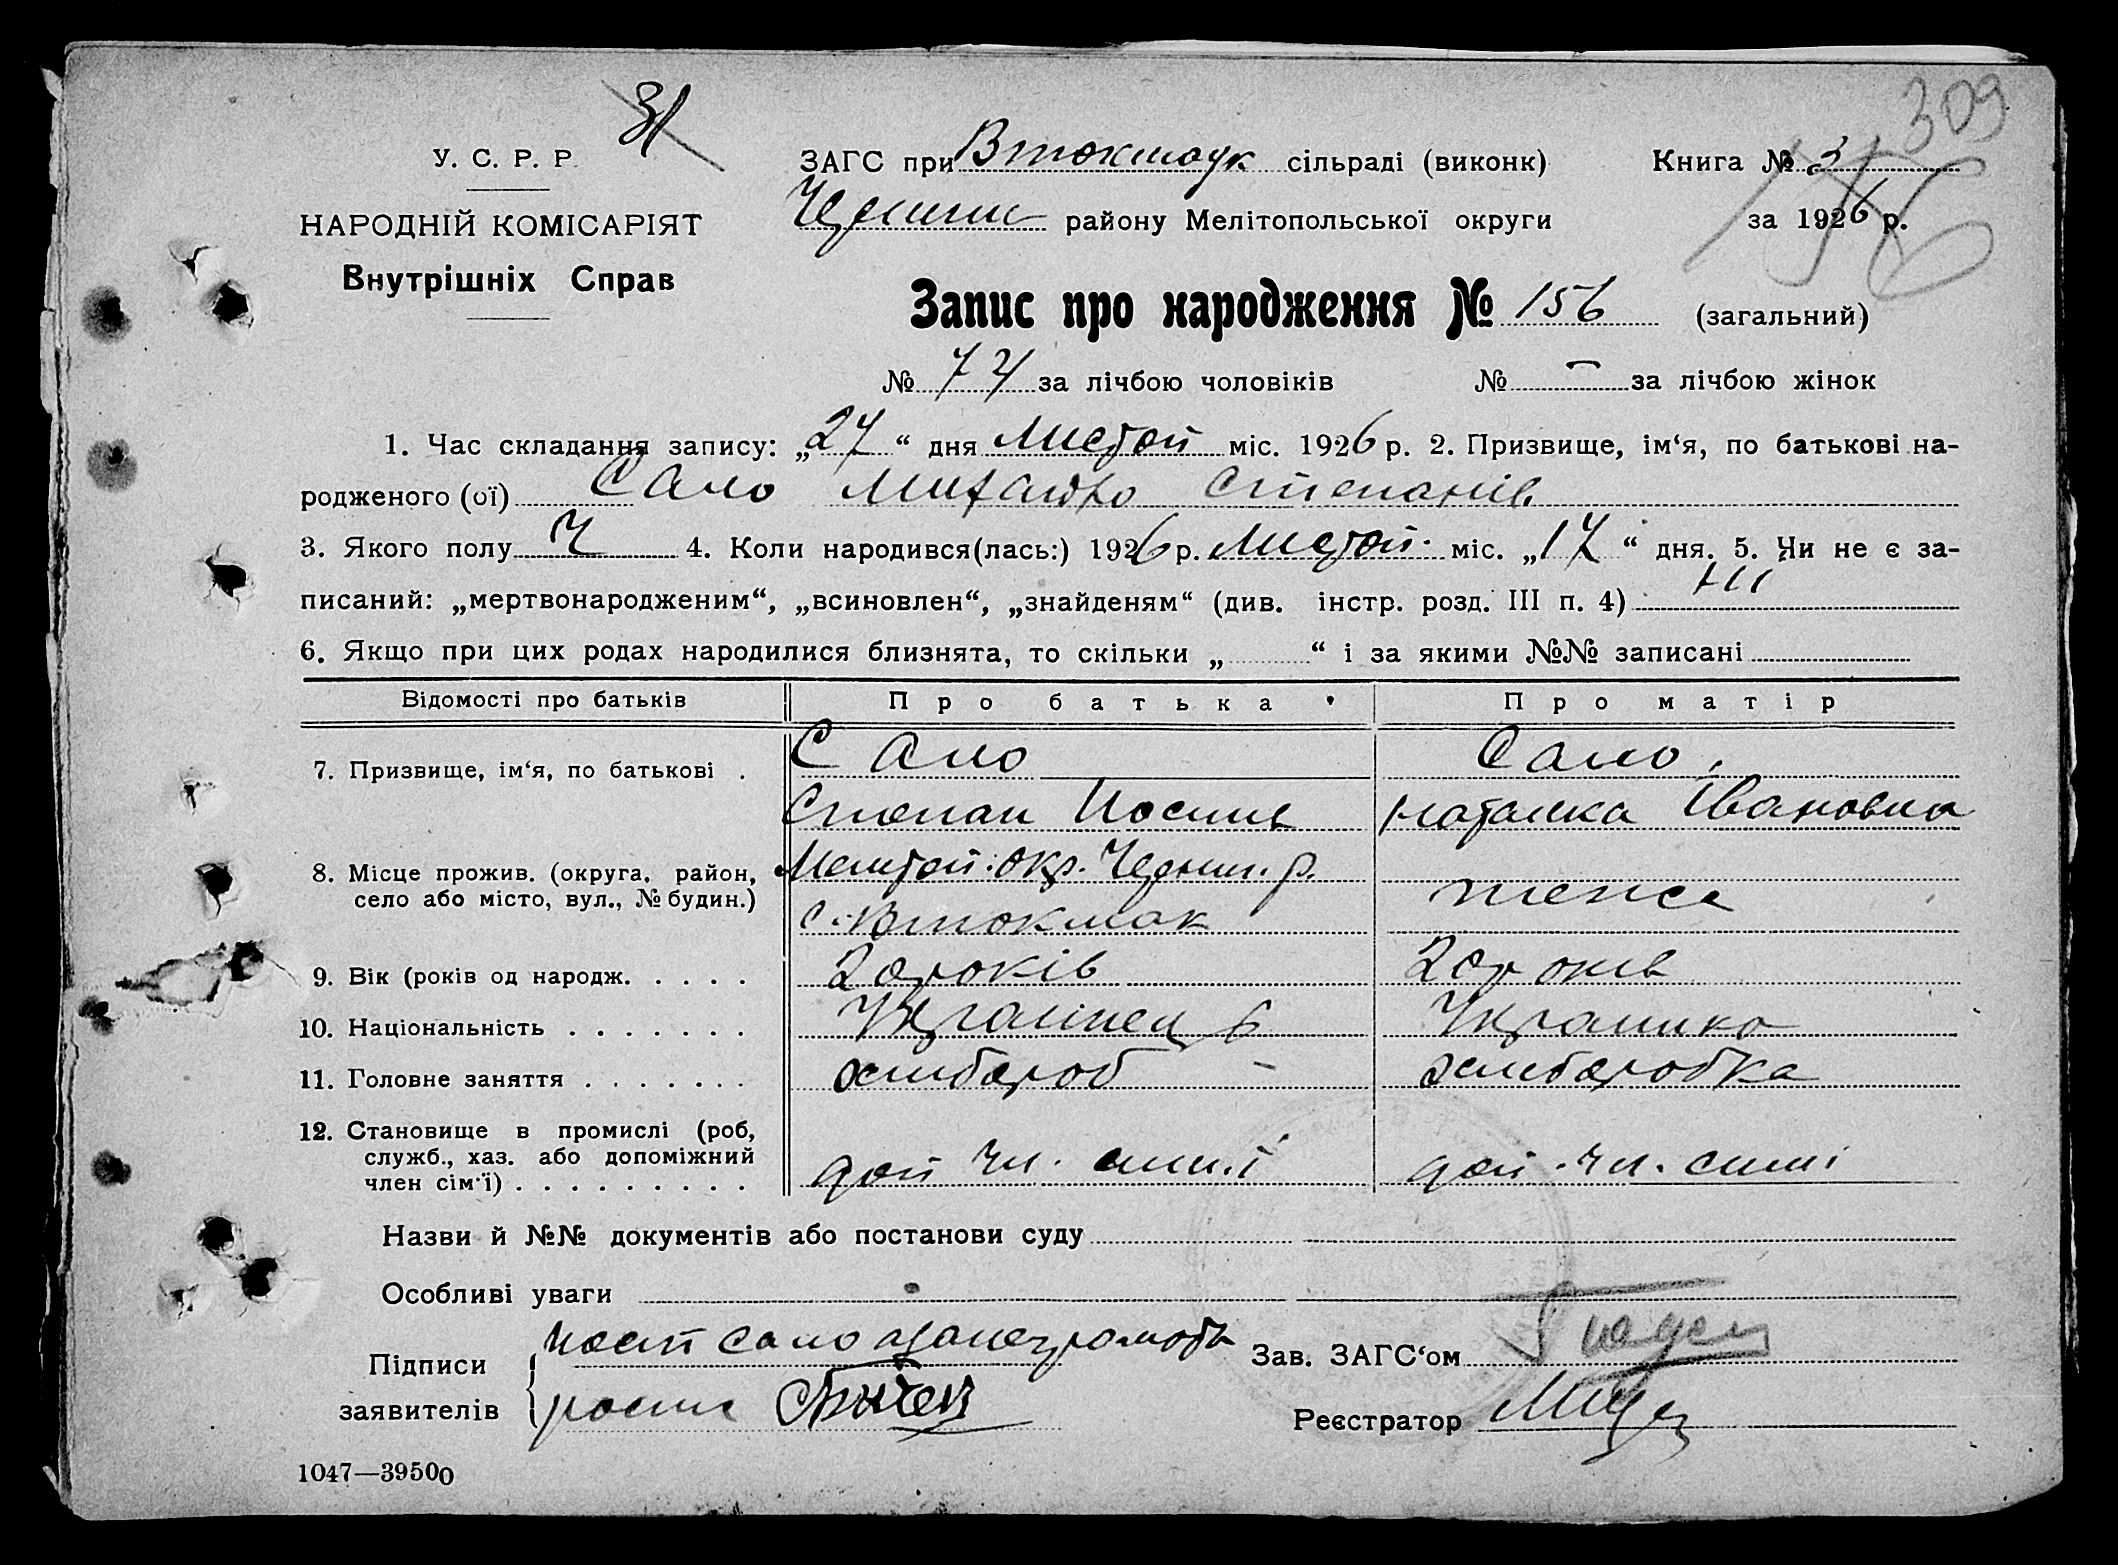 309
31
У. С. Р. Р.
ЗАГС при Втокмаук сільраді (виконк)
Книга № 3
НАРОДНІЙ КОМІСАРІЯТ
району Мелітопольської округи
за 1926 р.
Внутрішніх Справ
156
Запис про народження № 156 (загальний)
№ 74 за лічбою чоловіків № — за лічбою жінок
1. Час складання запису: „27“ дня Листоп міс. 1926 р. 2. Призвище, ім‘я, по батькові на-
родженого (ої) Сало Михайло Степанів
3. Якого полу Ч 4. Коли народився(лась:) 1926 р. Листоп. міс. „17“ дня. 5. Чи не є за-
писаний: „мертвонародженим“, „всиновлен“, „знайденям“ (див. інстр. розд. III п. 4) Ні
6. Якщо при цих родах народилися близнята, то скільки „ “ і за якими №№ записані
Відомості про батьків Про батька Про матір
7. Призвище, ім‘я, по батькові . Сало Сало
Степан Иосипів Наталка Івановна
8. Місце прожив. (округа, район,
село або місто, вул., № будин.)
Меліт. окр. Черниг. р.
с. Втокмак тежсе
9. Вік (років од народж. . . . . 20 років 20 років
10. Національність . . . . . . . Українец Украинка
11. Головне заняття . . . . . . . хлибороб – хлиборобка
12. Становище в промислі (роб,
служб., хаз. або допоміжний
член сім‘ї) . . . . . . . . . доп чл. сим.ї доп. чл. симі
Назви й №№ документів або постанови суду
Особливі уваги
Підписи
заявителів
Сало
Зав. ЗАГС‘ом
Реєстратор
1047—39500